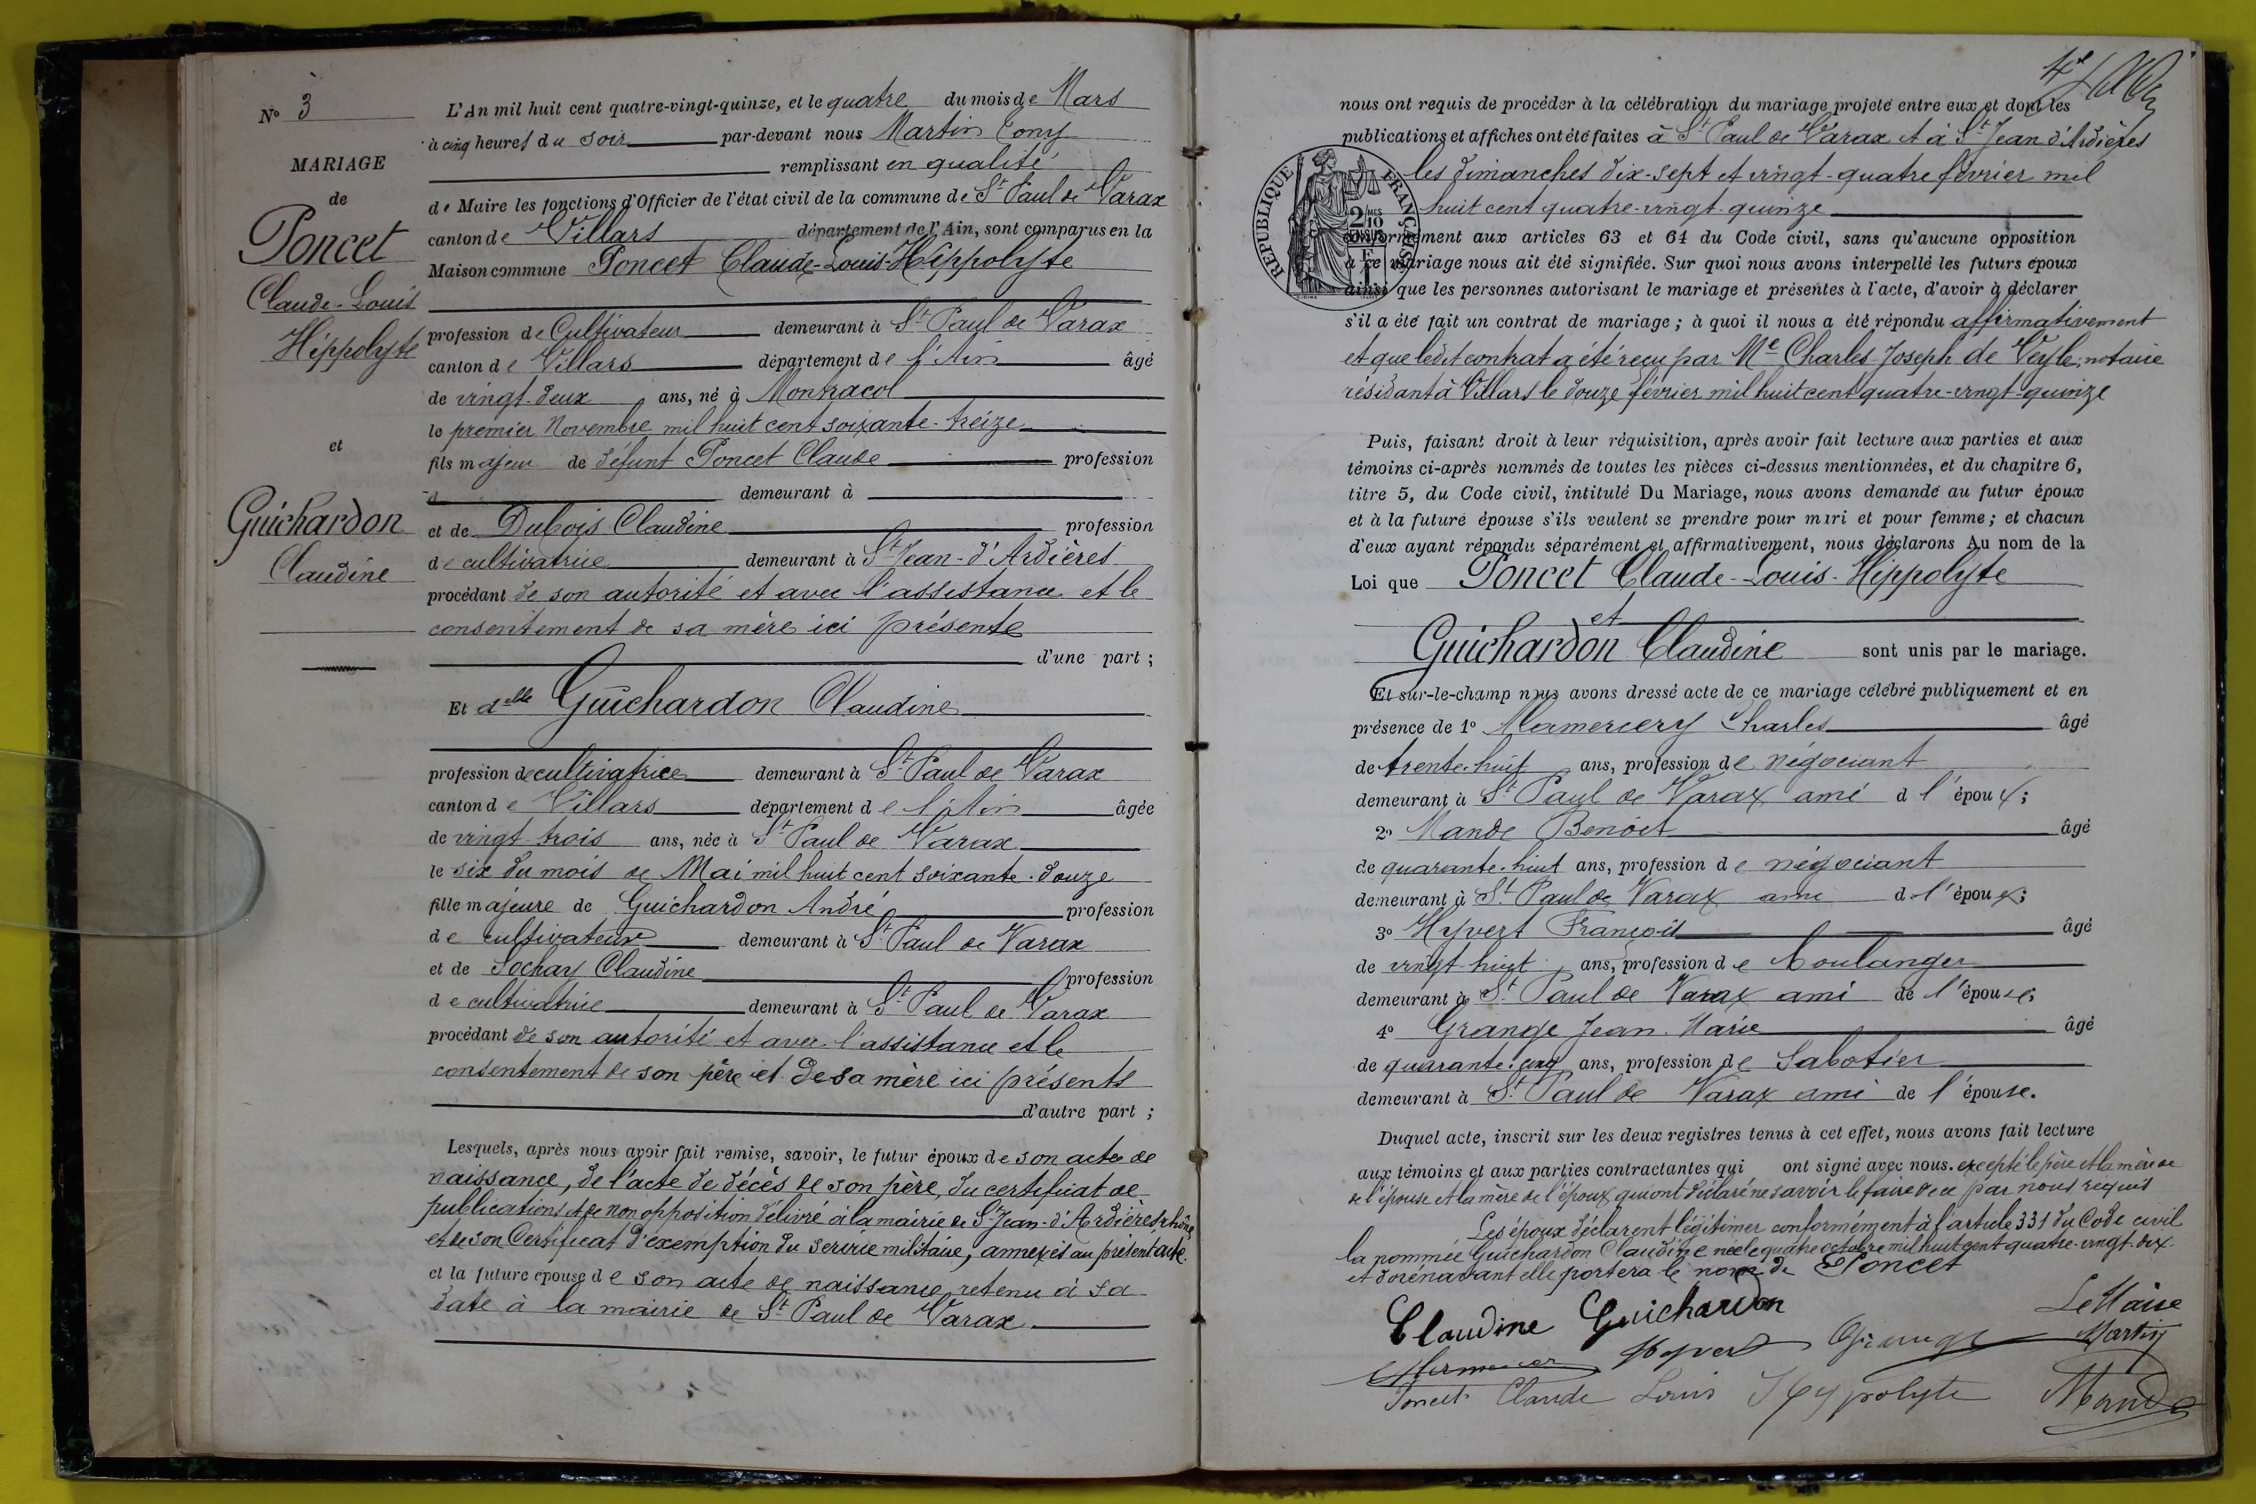 N° 3
MARIAGE
de
Poncet
Claude-Louis
Hippolyte
et
Guichardon
Claudine
L'An mil huit cent quatre-vingt-quinze, et le quatre du mois de Mars
à cinq heures du soir par-devant nous Martin Cony
remplissant en qualité
de Maire les fonctions d'Officier de l'état civil de la commune de St Paul de Varax
canton de Villars département de l'Ain, sont comparus en la
Maison commune Poncet Claude-Louis-Hippolyte
profession de Cultivateur demeurant à St Paul de Varax
canton de Villars département de l'Ain âgé
de vingt-deux ans, né à Montracol
le premier Novembre mil huit cent soixante-treize
fils majeur de défunt Poncet Claude profession
d demeurant à
et de Dubois Claudine profession
de cultivatrice demeurant à St Jean-d'Ardières
procédant de son autorité et avec l'assistance et le
consentement de sa mère ici présente
d'une part ;
Et delle Guichardon Claudine
profession de cultivatrice demeurant à St Paul de Varax
canton de Villars département de l'Ain âgée
de vingt trois ans, née à St Paul de Varax
le six du mois de Mai mil huit cent soixante-douze
fille majeure de Guichardon André profession
de cultivateur demeurant à St Paul de Varax
et de Sochay Claudine profession
de cultivatrice demeurant à St Paul de Varax
procédant de son autorité et avec l'assistance et le
consentement de son père et de sa mère ici présents
d'autre part ;
Lesquels, après nous avoir fait remise, savoir, le futur époux de son acte de
naissance, de l'acte de décès de son père, du certificat de
publications et de non opposition délivré à la mairie de St Jean-d'Ardières Rhône
et de son Certificat d'exemption du service militaire, annexés au présent acte.
et la future épouse de son acte de naissance retenu à sa
date à la mairie de St Paul de Varax
nous ont requis de procéder à la célébration du mariage projeté entre eux et dont les
publications et affiches ont été faites à St Paul de Varax et à St Jean d'Ardières
les dimanches dix-sept et vingt-quatre février mil
huit cent quatre-vingt-quinze
RÉPUBLIQUE FRANÇAISE
2/10
conformément aux articles 63 et 64 du Code civil, sans qu'aucune opposition
à ce mariage nous ait été signifiée. Sur quoi nous avons interpellé les futurs époux
ainsi que les personnes autorisant le mariage et présentes à l'acte, d'avoir à déclarer
s'il a été fait un contrat de mariage ; à quoi il nous a été répondu affirmativement
et que ledit contrat a été reçu par Me Charles Joseph de Veyle, notaire
résidant à Villars le douze février mil huit cent quatre-vingt-quinze
Puis, faisant droit à leur réquisition, après avoir fait lecture aux parties et aux
témoins ci-après nommés de toutes les pièces ci-dessus mentionnées, et du chapitre 6,
titre 5, du Code civil, intitulé Du Mariage, nous avons demandé au futur époux
et à la future épouse s'ils veulent se prendre pour mari et pour femme ; et chacun
d'eux ayant répondu séparément et affirmativement, nous déclarons Au nom de la
Loi que Poncet Claude-Louis-Hippolyte
et
Guichardon Claudine sont unis par le mariage.
Et sur-le-champ nous avons dressé acte de ce mariage célébré publiquement et en
présence de 1° Charles âgé
de trente-huit ans, profession de négociant
demeurant à St Paul de Varax ami d l'époux ;
2° Mande Benoît âgé
de quarante-huit ans, profession de négociant
demeurant à St Paul de Varax ami d l'époux ;
3° Hyvert François âgé
de vingt-huit ans, profession de boulanger
demeurant à St Paul de Varax ami de l'épouse
4° Grange Jean-Marie âgé
de quarante-cinq ans, profession de Sabotier
demeurant à St Paul de Varax ami de l'épouse.
Duquel acte, inscrit sur les deux registres tenus à cet effet, nous avons fait lecture
aux témoins et aux parties contractantes qui ont signé avec nous. excepté le père et la mère de
de l'épouse et la mère de l'époux qui ont déclaré ne savoir le faire de ce par nous requis
Les époux déclarent légitimer conformément à l'article 331 du Code civil
la nommée Guichardon Claudine née le quatre octobre mil huit cent quatre-vingt-dix
et dorénavant elle portera le nom de Poncet
Claudine Guichardon
Le Maire
Hyvert Grange Martin
Poncet Claude Louis Hyppolyte Mande